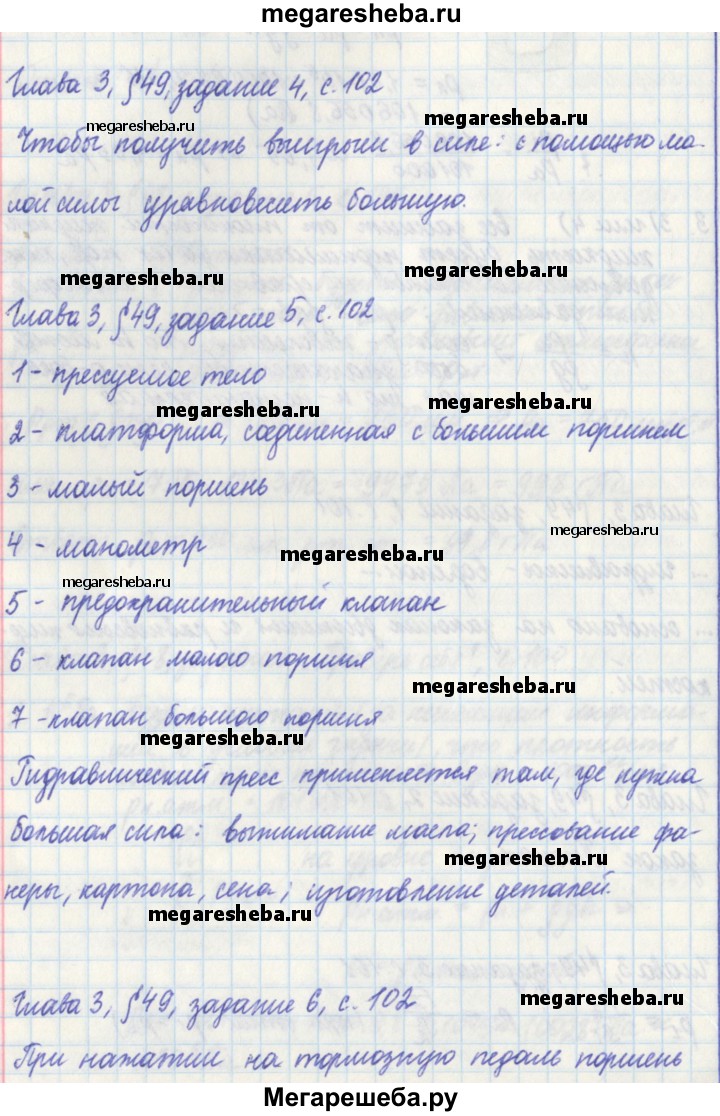 megaresheba.ru
Глава 3, §49, задание 4, с. 102
megaresheba.ru
megaresheba.ru
Чтобы получить выигрыш в силе: с помощью ма-
лой силы уравновесить большую.
megaresheba.ru
megaresheba.ru
Глава 3, §49, задание 5, с. 102
1 - прессуемое тело
megaresheba.ru
megaresheba.ru
2 - платформа, соединенная с большим поршнем
3 - малый поршень
4 - манометр
megaresheba.ru
megaresheba.ru
5 - предохранительный клапан
6 - клапан малого поршня
megaresheba.ru
7 - клапан большого поршня
megaresheba.ru
Гидравлический пресс применяется там, где нужна
большая сила: выжимание масла; прессование фа-
megaresheba.ru
неры, картона, сена; изготовление деталей.
megaresheba.ru
Глава 3, §49, задание 6, с. 102
megaresheba.ru
При нажатии на тормозную педаль поршень
Мегарешеба.ру